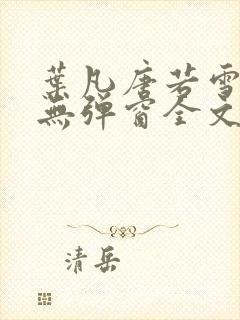 葉凡唐若雪
無彈窗全文
清岳